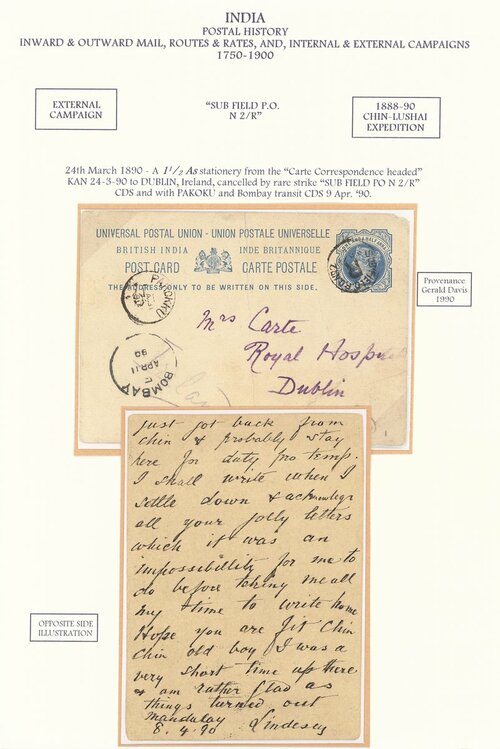 INDIA
POSTAL HISTORY
INWARD & OUTWARD MAIL, ROUTES & RATES, AND, INTERNAL & EXTERNAL CAMPAIGNS
1750-1900
EXTERNAL
CAMPAIGN
"SUB FIELD P.O.
N 2/R"
1888-90
CHIN-LUSHAI
EXPEDITION
24th March 1890 - A 1½ As stationery from the "Carte Correspondence headed"
KAN 24-3-90 to DUBLIN, Ireland, cancelled by rare strike "SUB FIELD PO N 2/R"
CDS and with PAKOKU and Bombay transit CDS 9 Apr. '90.
UNIVERSAL POSTAL UNION - UNION POSTALE UNIVERSELLE
BRITISH INDIA INDE BRITANNIQUE
POST CARD CARTE POSTALE
THE ADDRESS ONLY TO BE WRITTEN ON THIS SIDE.
Provenance
Gerald Davis
1990
Mrs Carte
Royal Hosp
Dublin
BOMBAY
APR 11
90
just got back from
chin & probably stay
here for duty pro temp.
I shall write when I
settle down &
all your jolly letters
which it was an
impossibillity for me to
do before me all
my time to write home
Hope you are fit chin
chin old boy I was a
very short time up there
& am rather glad as
things turned out
mandalay Lindesay
8.4.90
OPPOSITE SIDE
ILLUSTRATION